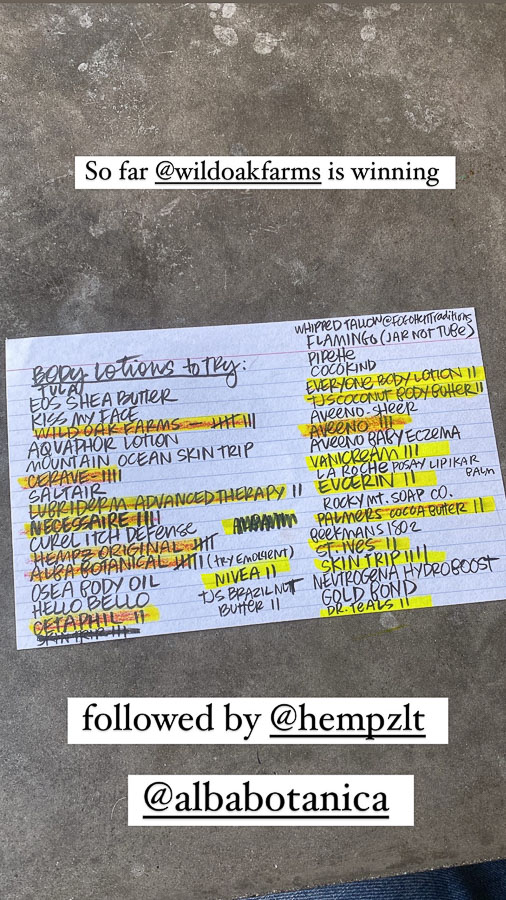 So far @wildoakfarms is winning
BODY LOTIONS to TRY:
TULA
EOS SHEA BUTTER
KISS MY FACE
WILD OAK FARMS - 𝍸 III
AQUAPHOR LOTION
MOUNTAIN OCEAN SKIN TRIP
CERAVE IIII
SALTAIR
LUBRIDERM ADVANCED THERAPY II
NECESSAIRE IIII
CUREL ITCH DEFENSE
HEMPZ ORIGINAL 𝍸
ALBA BOTANICAL 𝍸 I (TRY EMOLLIENT)
OSEA BODY OIL
NIVEA II
HELLO BELLO
TJS BRAZIL NUT
BUTTER II
CETAPHIL II
SKIN TRIP III
WHIPPED TALLOW @FOGOTTENTRADITIONS
FLAMINGO (JAR NOT TUBE)
PIPETTE
COCOKIND
EVERYONE BODY LOTION II
TJS COCONUT BODY BUTTER II
AVEENO SHEER
AVEENO III
AVEENO BABY ECZEMA
VANICREAM III
LA ROCHE POSAY LIPIKAR
BALM
EUCERIN II
ROCKY MT. SOAP CO.
PALMERS COCOA BUTTER II
BEEKMANS 1802
ST. IVES II
SKIN TRIP IIII
NEUTROGENA HYDROBOOST
GOLD BOND
DR. TEALS II
followed by @hempzlt
@albabotanica